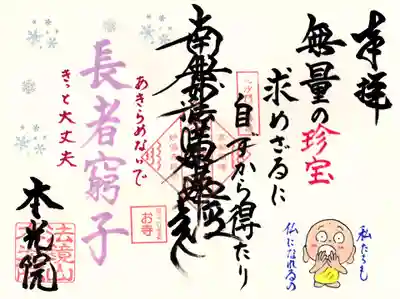 奉拝
無量の珍宝
求めざるに
自ずから得たり
南無妙法蓮華経
あきらめないで
長者窮子
きっと大丈夫
本光院
お寺
法鏡山
私たちも
仏になれるの